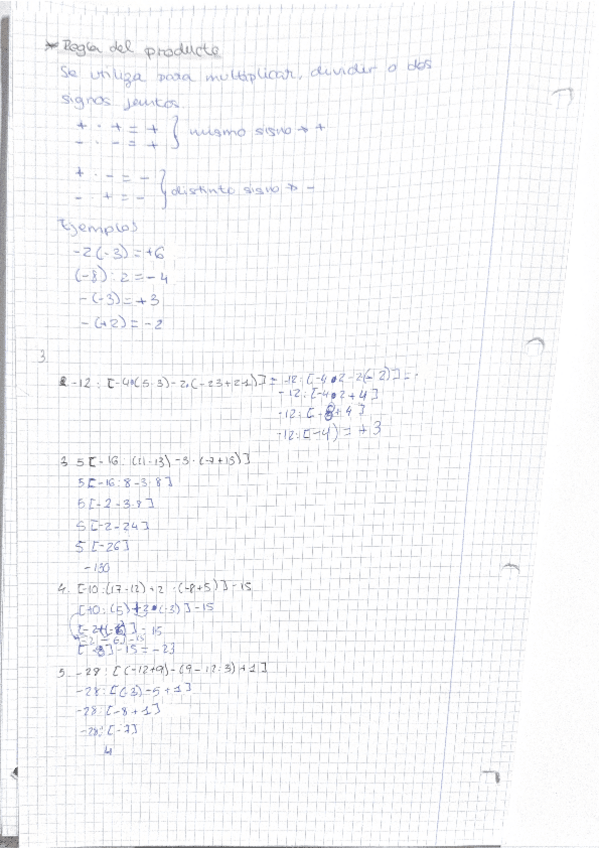 * Regla del producto
Se utiliza para multiplicar, dividir o dos
signos juntos.
+ · + = + } mismo signo → +
- · - = +
+ · - = - } distinto signo → -
- · + = -
Ejemplos
-2(-3) = +6
(-8) : 2 = -4
-(-3) = +3
-(+2) = -2
3.
-12 : [-4·(5-3)-2·(-23+21)] = -12:[-4·2-2(-2)] =
-12:[-4·2+4]
-12:[-8+4]
-12:[-4] = +3
3. 5[-16 : (21-13) -3 · (-7+15)]
5[-16:8-3·8]
5[-2-3·8]
5[-2-24]
5[-26]
-130
4. [-10:(17-12)+2·(-8+5)]-15
[-10:(5)+2·(-3)]-15
[-2+(-6)]-15
[-2-6]-15
[-8]-15 = -23
5. -28:[(-12+9)-(9-12:3)+1]
-28:[(-3)-5+1]
-28:[-8+1]
-28:[-7]
4